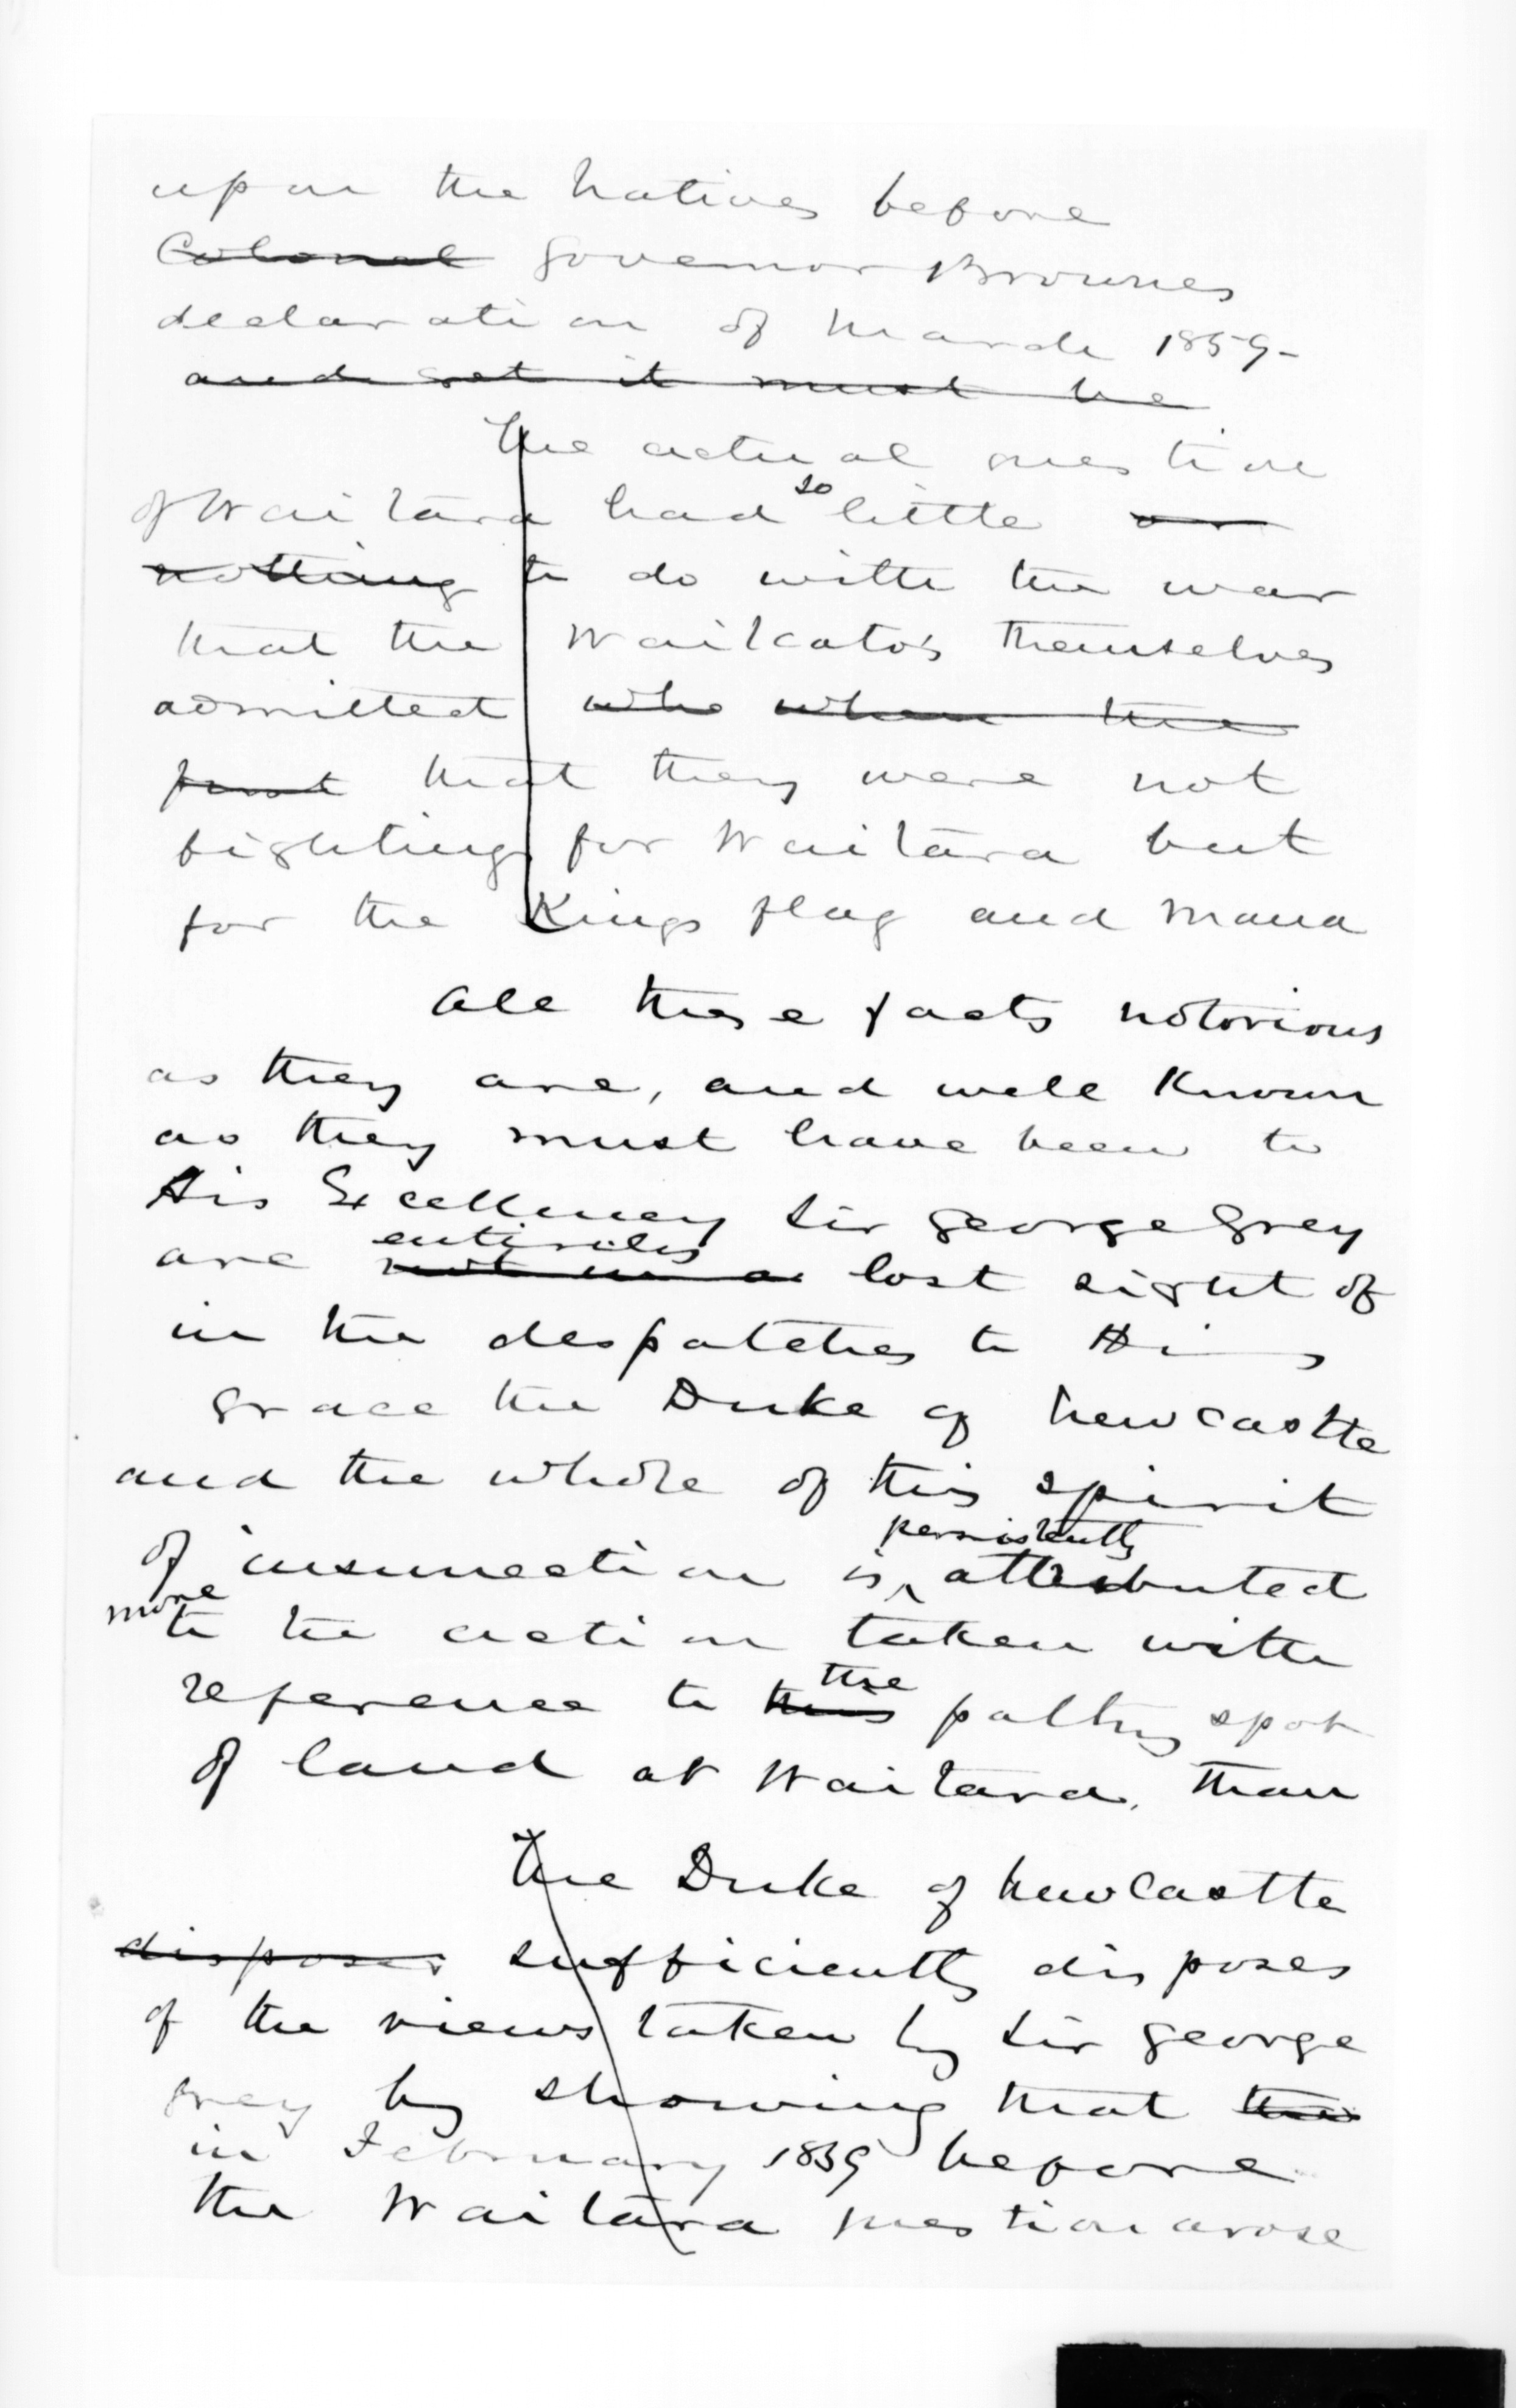 upon the Natives before
Colonel Governor Brownes
declaration of March 1859-
and yet it must be
The actual question
of Waitara had so little or
nothing to do with the war
that the Waikato's themselves
admitted who when the
that they were not
fighting for Waitara but
for the Kings flag and Mana
All these facts notorious
as they are, and well known
as they must have been to
His Excellency Sir George Grey
are entirely not in a lost sight of
in the despatches to His
Grace the Duke of Newcastle
and the whole of this spirit
of insurrection is persistently attributed
more to the action taken with
reference to this the paltry spot
of land at Waitara, than
The Duke of Newcastle
disposes sufficiently disposes
of the views taken by Sir George
Grey by showing that the
in February 1859 before
the Waitara question arose